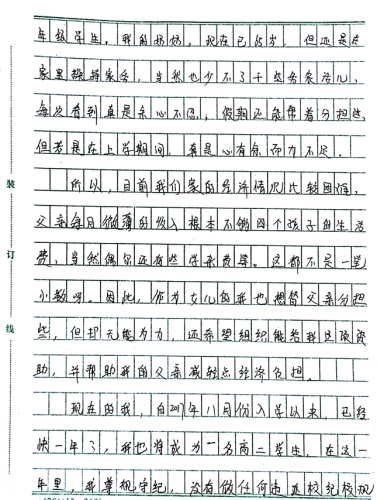 年级学生。我的妈妈，现在已65岁，但还是在
家里操持家务，当然也少不了干些务农活儿，
每次看到真是于心不忍，假期还能帮着分担些，
但若是在上学期间，真是心有余而力不足。
所以，目前我们家的经济情况比较困难，
父亲每月微薄的收入根本不够四个孩子的生活
费，当然偶尔还有些学杂费等。这都不是一笔
小数呀。因此，作为女儿的我也想替父亲分担
些，但却无能为力，还希望组织能给我这项资
助，并帮助我的父亲减轻点经济负担。
现在的我，自2017年八月份入学以来，已经
快一年了，我也将成为一名高二学生，在这一
年里，我遵规守纪，没有做任何违反校纪校规
装
订
线